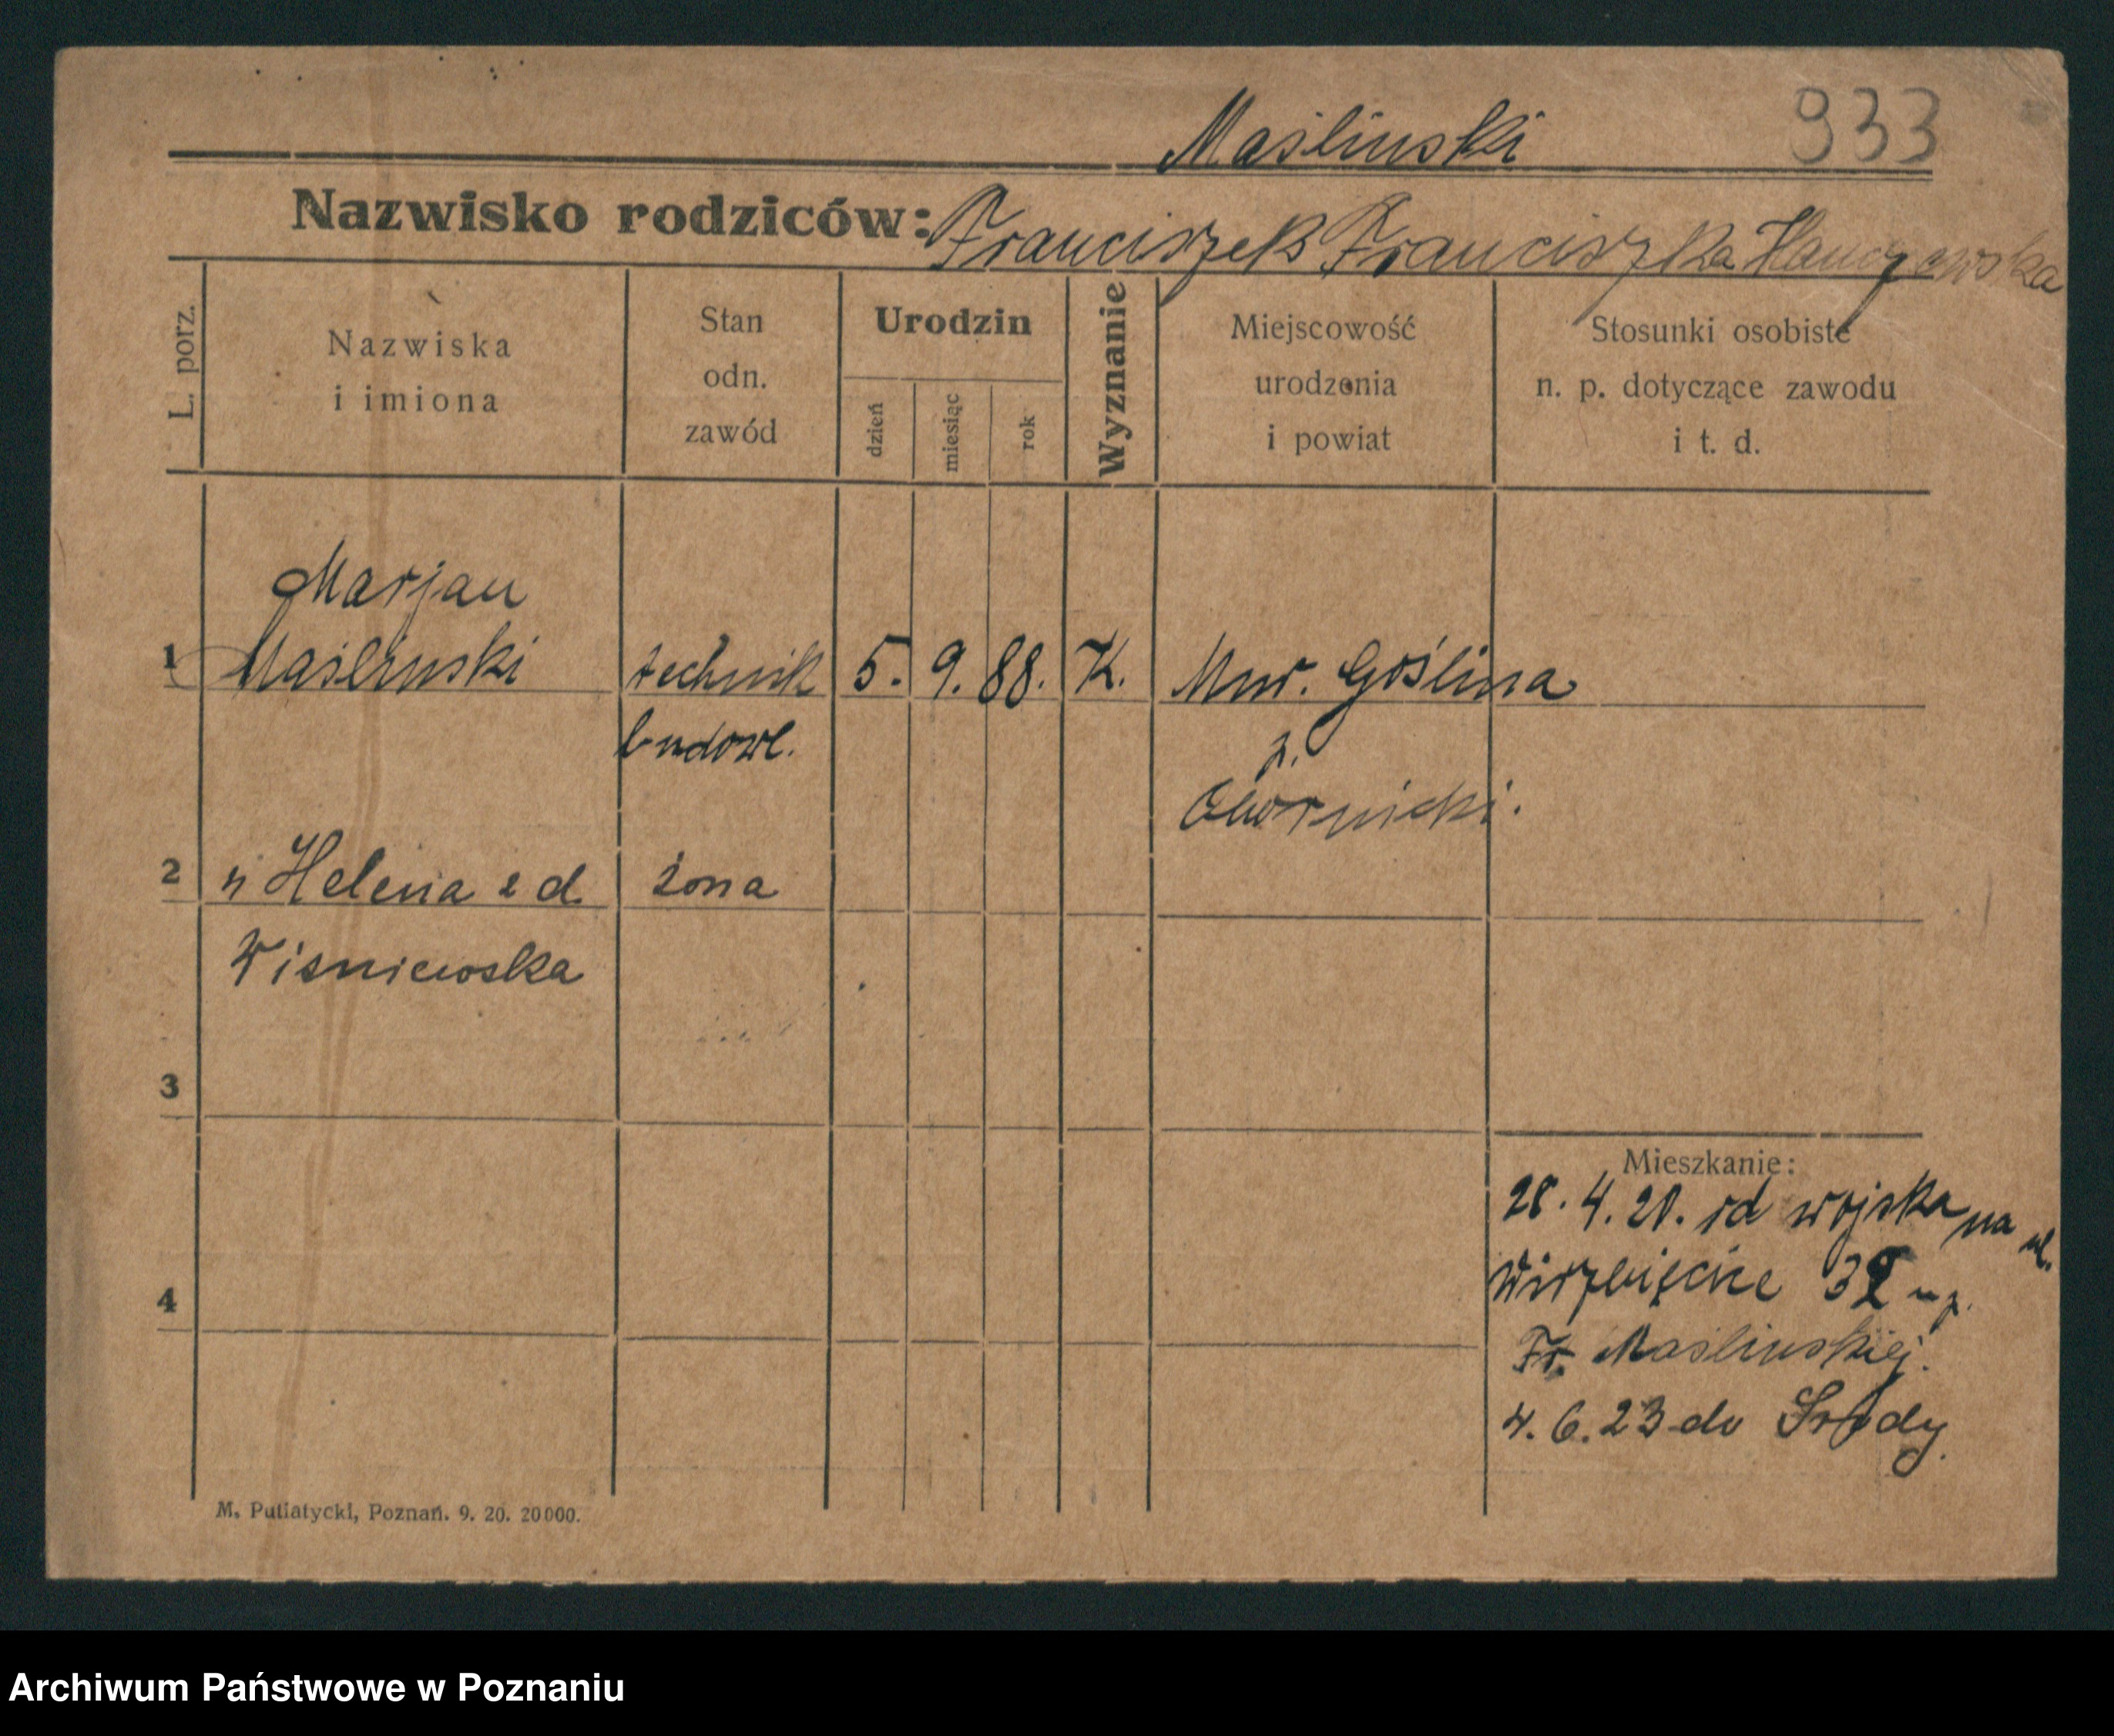 933
Maślinski
Nazwisko rodziców: Franciszek Franciszka
L. porz.
Nazwiska
i imiona
Stan
odn.
zawód
Urodzin
dzień
miesiąc
rok
Wyznanie
Miejscowość
urodzenia
i powiat
Stosunki osobiste
n. p. dotyczące zawodu
i t. d.
Marjan
1 Maślinski technik 5. 9. 88. K. Mur. Goślina
budowl.
p.
Obornicki.
2 " Helena z d. żona
Wisniewska
3
Mieszkanie:
28. 4. 21. od wojska na ul.
Wierzbięcice 32
4
Fr. Maślinskiej.
4. 6. 23 do Środy.
M. Putiatycki, Poznań. 9. 20. 20000.
Archiwum Państwowe w Poznaniu